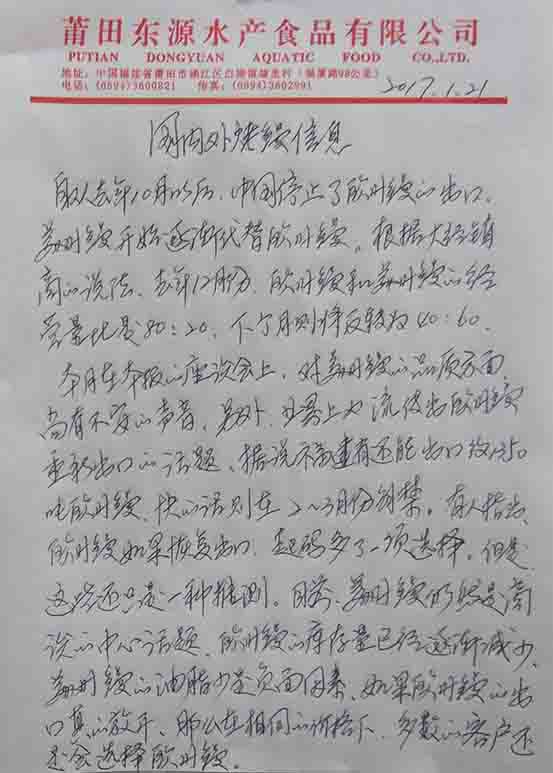 莆田东源水产食品有限公司
PUTIAN DONGYUAN AQUATIC FOOD CO.,LTD.
地址：中国福建省莆田市涵江区白塘镇镇龙村（福厦路98公里）
电话：(0594)3600821 传真：(0594)3602991
2017.1.21
国内外烤鳗信息
自从去年10月以后，中国停止了欧洲鳗的出口，
美洲鳗开始逐渐代替欧洲鳗。根据大经销
商的说法，去年12月份，欧洲鳗和美洲鳗的经
营量比是80：20，下个月则将反转为40：60。
本月在本报的座谈会上，对美洲鳗的品质方面
尚有不安的声音。另外，业界上也流传出欧洲鳗
重新出口的话题，据说福建有还能出口约1350
吨欧洲鳗，快的话则在2～3月份解禁。有人指出，
欧洲鳗如果恢复出口，起码多了一项选择。但是
这些还只是一种推测。目前，美洲鳗仍然是商
谈的中心话题，欧洲鳗的库存量已经逐渐减少，
美洲鳗的油脂少是负面因素，如果欧洲鳗的出
口真的放开，那么在相同的价格下，多数的客户还
是会选择欧洲鳗。